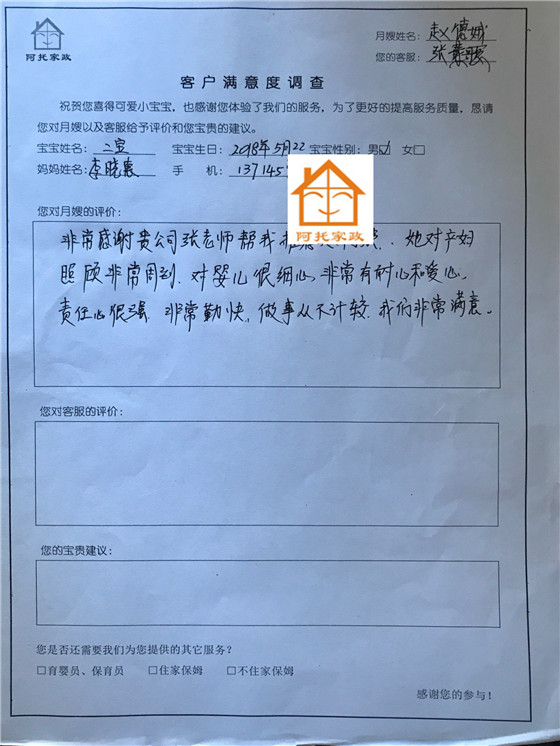 阿托家政
月嫂姓名：赵德娥
您的客服：张
客户满意度调查
祝贺您喜得可爱小宝宝，也感谢您体验了我们的服务，为了更好的提高服务质量，恳请
您对月嫂以及客服给予评价和您宝贵的建议。
宝宝姓名：二宝 宝宝生日：2018年5月22 宝宝性别：男☑ 女□
妈妈姓名：李晓 手 机：13714
阿托家政
您对月嫂的评价：
非常感谢贵公司张老师帮我 她对产妇
照顾非常周到．对婴儿很细心，非常有耐心和爱心．
责任心很强 非常勤快，做事从不计较．我们非常满意．
您对客服的评价：
您的宝贵建议：
您是否还需要我们为您提供的其它服务？
□育婴员、保育员 □住家保姆 □不住家保姆
感谢您的参与！